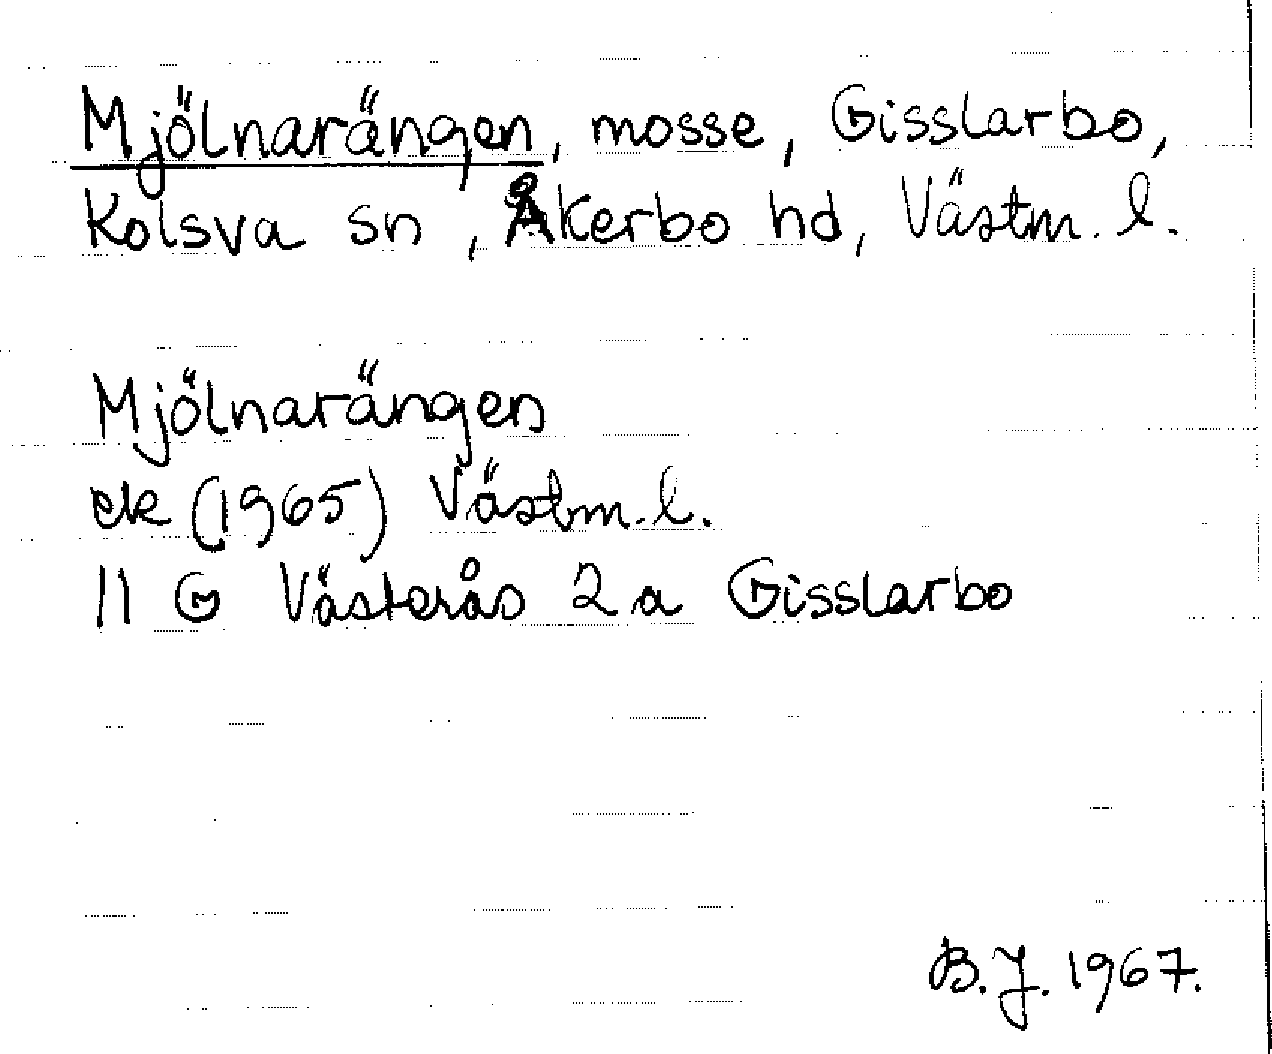 Mjölnarängen, mosse, Gisslarbo,
Kolsva sn, Åkerbo hd, Västm. l.
Mjölnarängen
ek (1965) Västm. l.
11 G Västerås 2 a Gisslarbo
B.J. 1967.